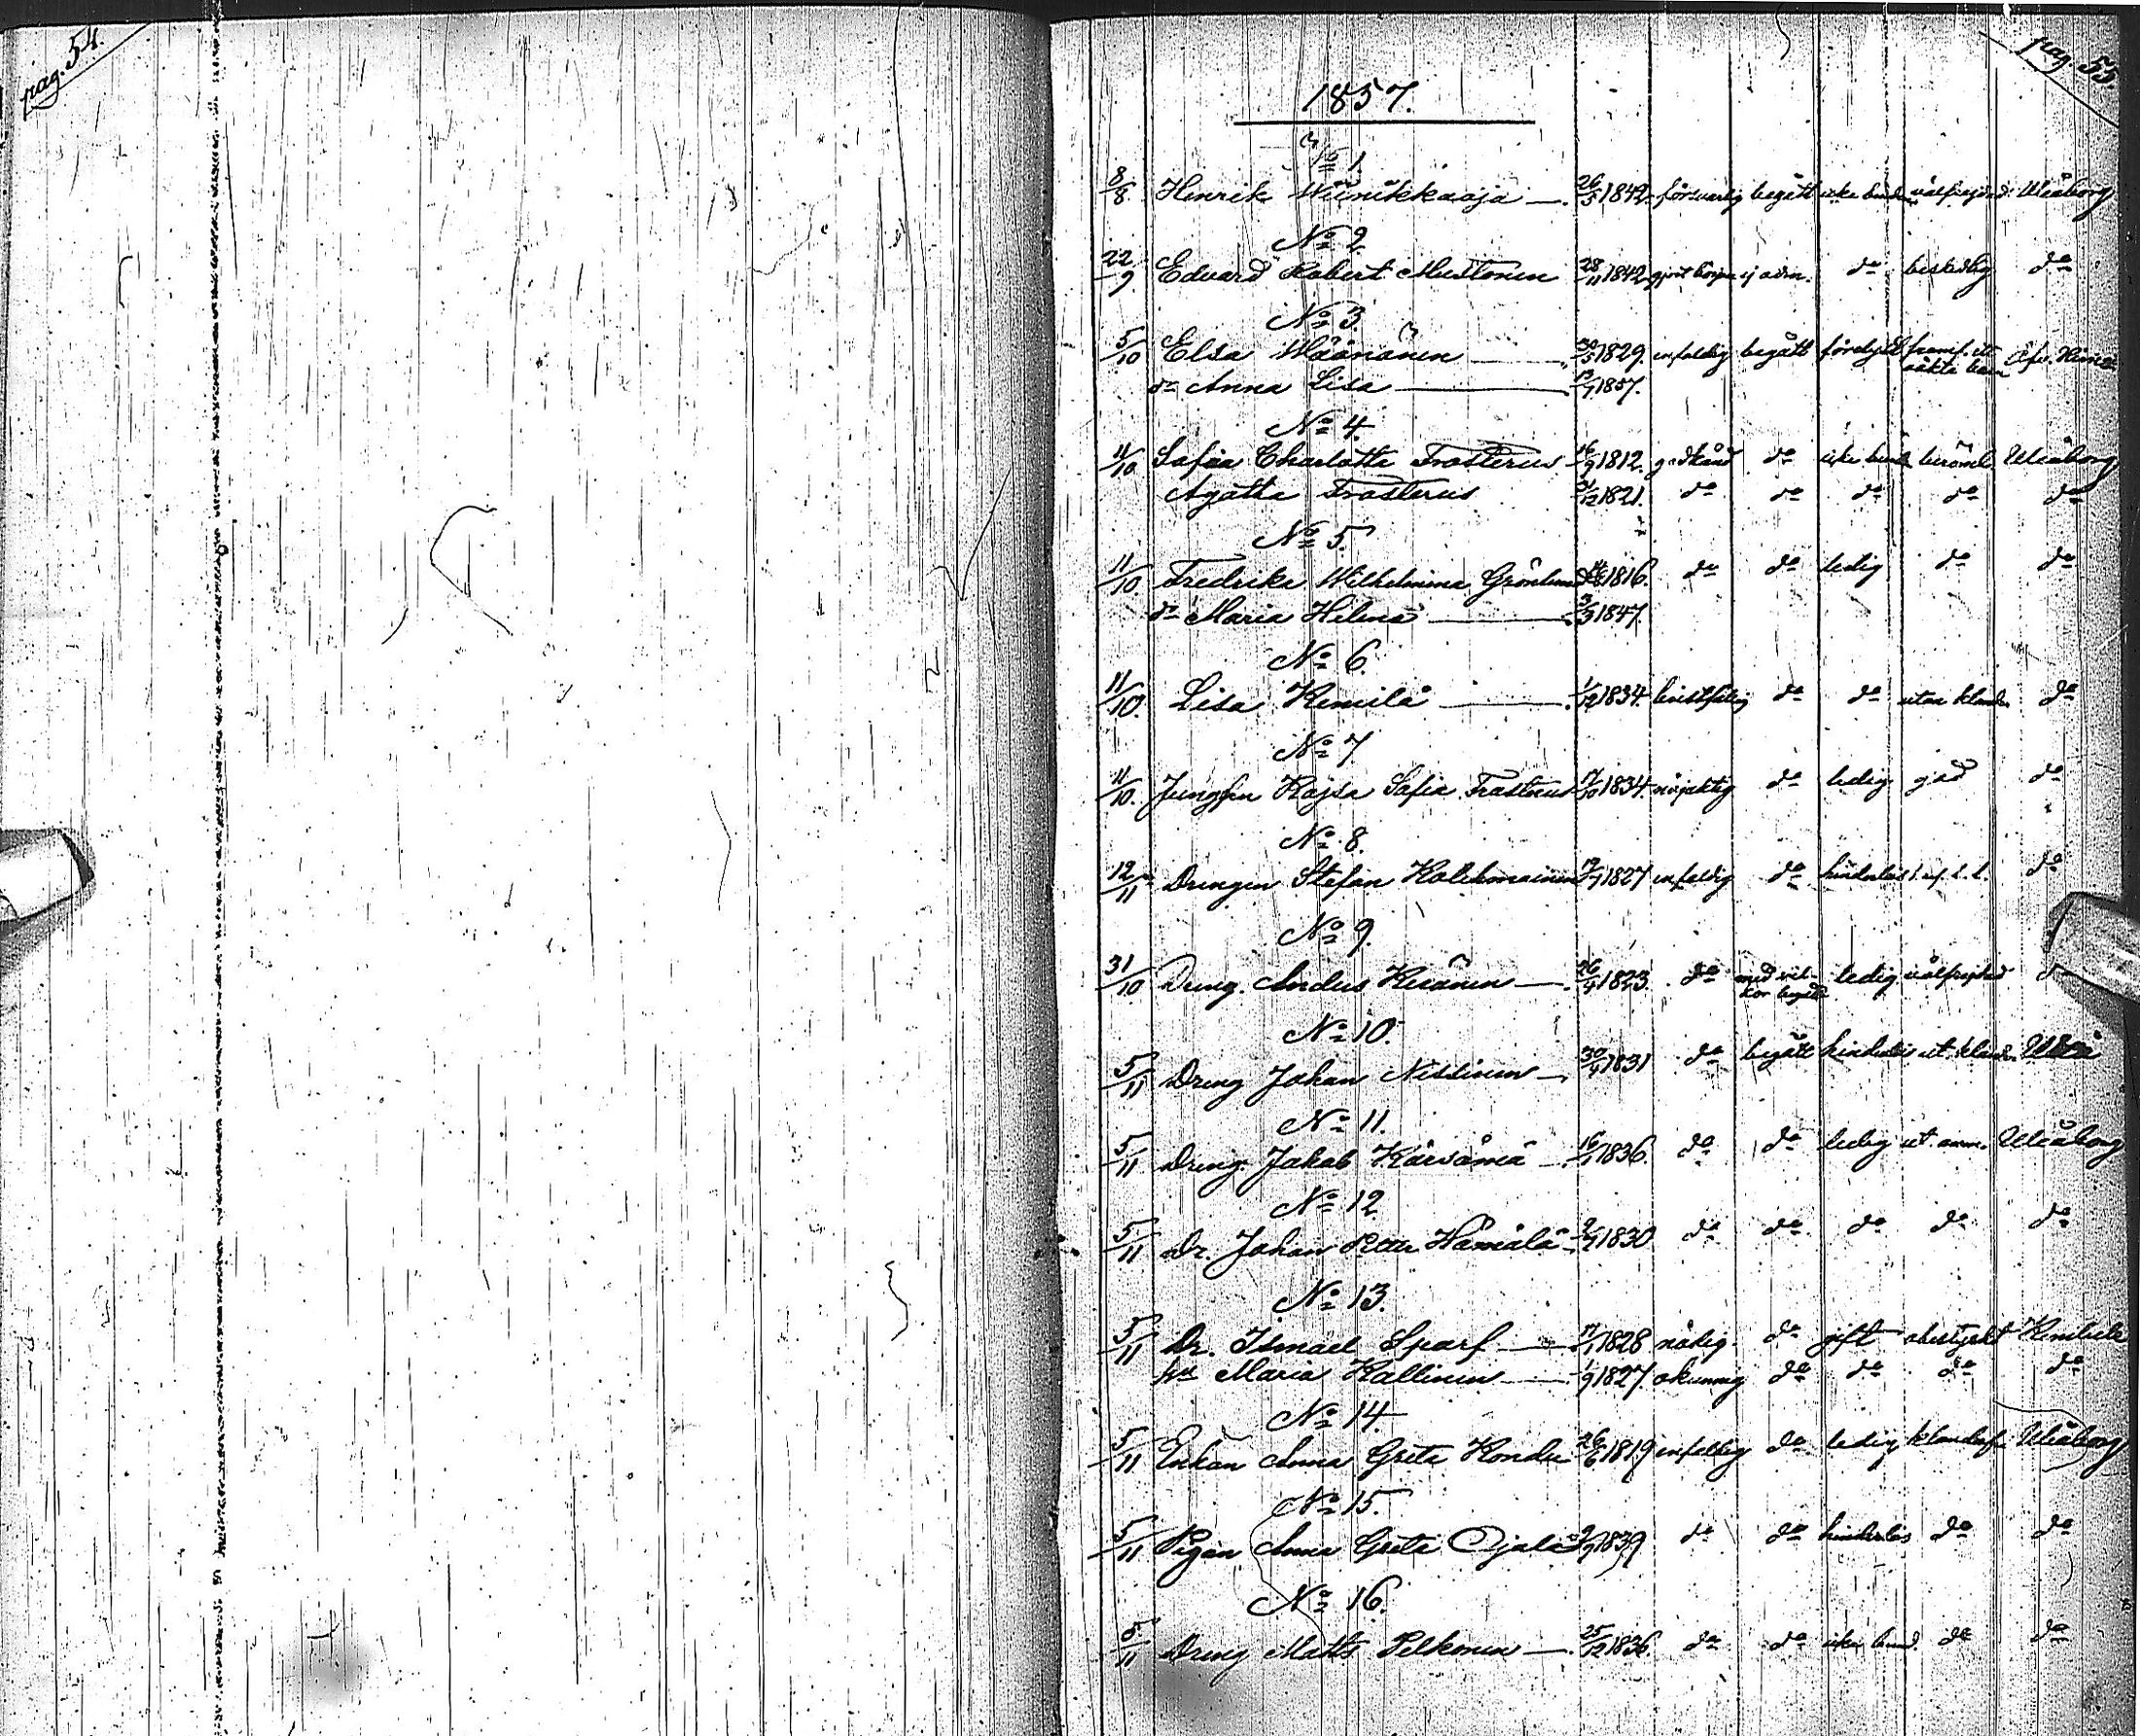 pag. 54.
pag. 55.
1857.
No 1
8/8 Henrik Wiinikkaoja 26/5 1842 försvarlig begått icke bund. välfrejdad Uleåborg
No 2
22/9 Edvard Robert Mustonen 28/11 1842 gjort början ej adm. do beskedlig do
No 3.
5/10 Elsa Wäänänen 30/5 1829. enfaldig begått framf. ett oäkta barn
do Anna Lisa 1857.
No 4.
11/10 Sofia Charlotta Frosterus 16/9 1812. godkänd do icke bund. beröml. Uleåborg
Agatha Frosterus 21/12 1821. do do do do do
No 5.
11/10 Fredrika Wilhelmina Grönlund 1816. do do ledig do do
dr Maria Helena 3/3 1847.
No 6.
11/10. Lisa Kemilä 1/12 1834. bristfällig do do utan klander do
No 7
11/10. Jungfrun Kajsa Sofia Frosterus 17/10 1834. nöjaktig do ledig god do
No 8.
12/11 Drengen Stefan Kolehmainen 1827 enfaldig do hinderlös do
No 9.
31/10 Dreng. Anders Keränen 26/4 1823. do med vilkor begått ledig välfrejdad
No 10.
5/11 Dreng Johan Nissinen 30/4 1831 do begått hinderlös ut. kland.
No 11.
5/11 Dreng. Jakob Kärsämä 16/1 1836. do do ledig ut. anm. Uleåborg
No 12
5/11 Dr. Johan Petter Hämälä 1830 do do do do do
No 13.
5/11 Dr. Ismael Sparf 1828 nödig. do gift obestyrkt Kembele
hu Maria Kallinen 1/9 1827. okunnig do do do do
No 14
5/11 Enkan Anna Greta Kondu 26/6 1819 enfaldig do ledig klanderfri Uleåborg
No 15.
5/11 Pigan Anna Greta Ojala 1839 do do hinderlös do do
No 16.
5/11 Dreng Matts Pelkonen 25/12 1836. do do icke bund. do do